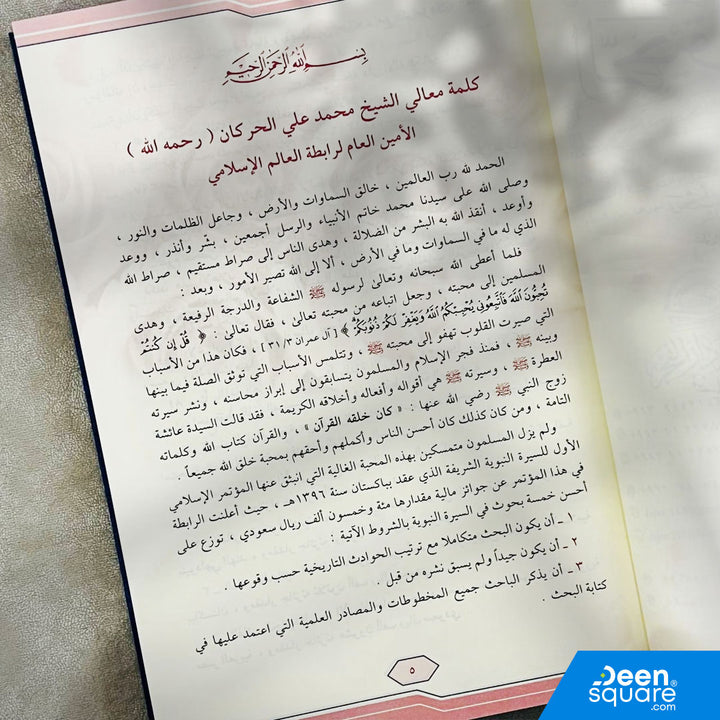 بسم الله الرحمن الرحيم
كلمة معالي الشيخ محمد علي الحركان ( رحمه الله )
الأمين العام لرابطة العالم الإسلامي
الحمد لله رب العالمين ، خالق السماوات والأرض ، وجاعل الظلمات والنور ،
وصلى الله على سيدنا محمد خاتم الأنبياء والرسل أجمعين ، بشّر وأنذر ، ووعد
وأوعد ، أنقذ الله به البشر من الضلالة ، وهدى الناس إلى صراط مستقيم ، صراط الله
الذي له ما في السماوات وما في الأرض ، ألا إلى الله تصير الأمور ، وبعد :
فلما أعطى الله سبحانه وتعالىٰ لرسوله ﷺ الشفاعة والدرجة الرفيعة ، وهدى
المسلمين إلى محبته ، وجعل اتباعه من محبته تعالىٰ ، فقال تعالىٰ : ﴿ قُلْ إِن كُنتُمْ
تُحِبُّونَ اللَّهَ فَاتَّبِعُونِي يُحْبِبْكُمُ اللَّهُ وَيَغْفِرْ لَكُمْ ذُنُوبَكُمْ ﴾ [ آل عمران ٣/ ٣١ ] ، فكان هذا من الأسباب
التي صيرت القلوب تهفو إلى محبته ﷺ ، وتتلمس الأسباب التي توثق الصلة فيما بينها
وبينه ﷺ ، فمنذ فجر الإسلام والمسلمون يتسابقون إلى إبراز محاسنه ، ونشر سيرته
العطرة ﷺ ، وسيرته ﷺ هي أقواله وأفعاله وأخلاقه الكريمة ، فقد قالت السيدة عائشة
زوج النبي ﷺ رضي الله عنها : « كان خلقه القرآن » ، والقرآن كتاب الله وكلماته
التامة ، ومن كان كذلك كان أحسن الناس وأكملهم وأحقهم بمحبة خلق الله جميعاً .
ولم يزل المسلمون متمسكين بهذه المحبة الغالية التي انبثق عنها المؤتمر الإسلامي
الأول للسيرة النبوية الشريفة الذي عقد بباكستان سنة ١٣٩٦هـ ، حيث أعلنت الرابطة
في هذا المؤتمر عن جوائز مالية مقدارها مئة وخمسون ألف ريال سعودي ، توزع على
أحسن خمسة بحوث في السيرة النبوية بالشروط الآتية :
١ ـ أن يكون البحث متكاملا مع ترتيب الحوادث التاريخية حسب وقوعها .
٢ ـ أن يكون جيداً ولم يسبق نشره من قبل .
٣ ـ أن يذكر الباحث جميع المخطوطات والمصادر العلمية التي اعتمد عليها في
كتابة البحث .
٥
Deen
square
.com